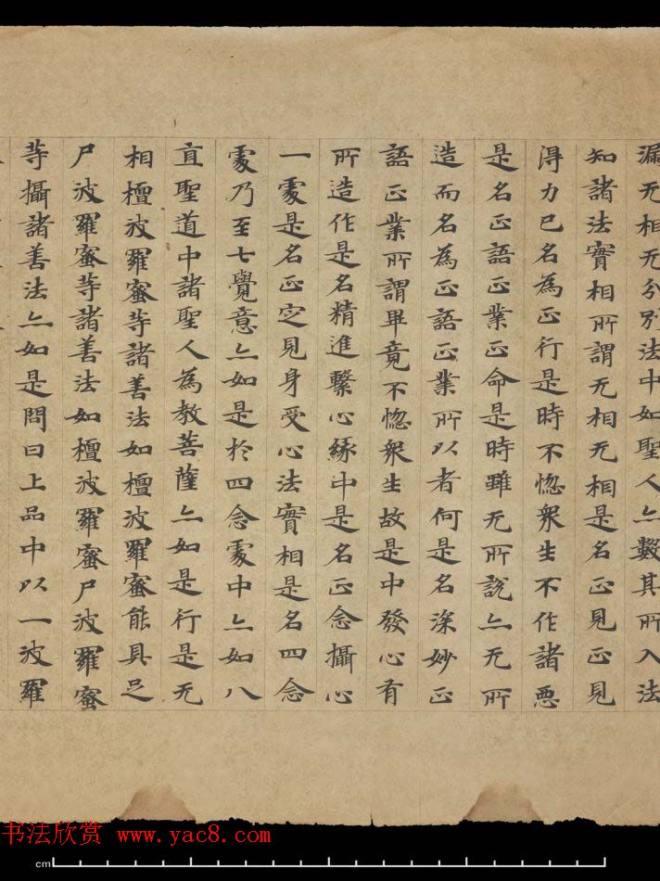 漏无相无分別法中如聖人亦數其所入法
知諸法實相所謂无相无相是名正見正見
淂力已名為正行是時不惱衆生不作諸惡
是名正語正業正命是時雖无所說亦无所
造而名為正語正業所以者何是名深妙正
語正業所謂畢竟不惱衆生故是中發心有
所造作是名精進繫心緣中是名正念攝心
一處是名正定見身受心法實相是名四念
處乃至七覺意亦如是於四念處中亦如八
直聖道中諸聖人為教菩薩亦如是行是无
相檀波羅蜜等諸善法如檀波羅蜜能具足
尸波羅蜜等諸善法如檀波羅蜜尸波羅蜜
等攝諸善法亦如是問曰上品中以一波羅
书法欣赏 www.yac8.com
cm